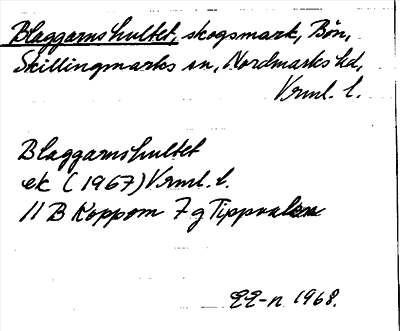 Blaggarnshultet, skogsmark, Bön,
Skillingmarks sn, Nordmarks hd,
Vrml. l.
Blaggarnshultet
ek (1967) Vrml. l.
11 B Koppom 7 g Tippvalen
QQ-n 1968.